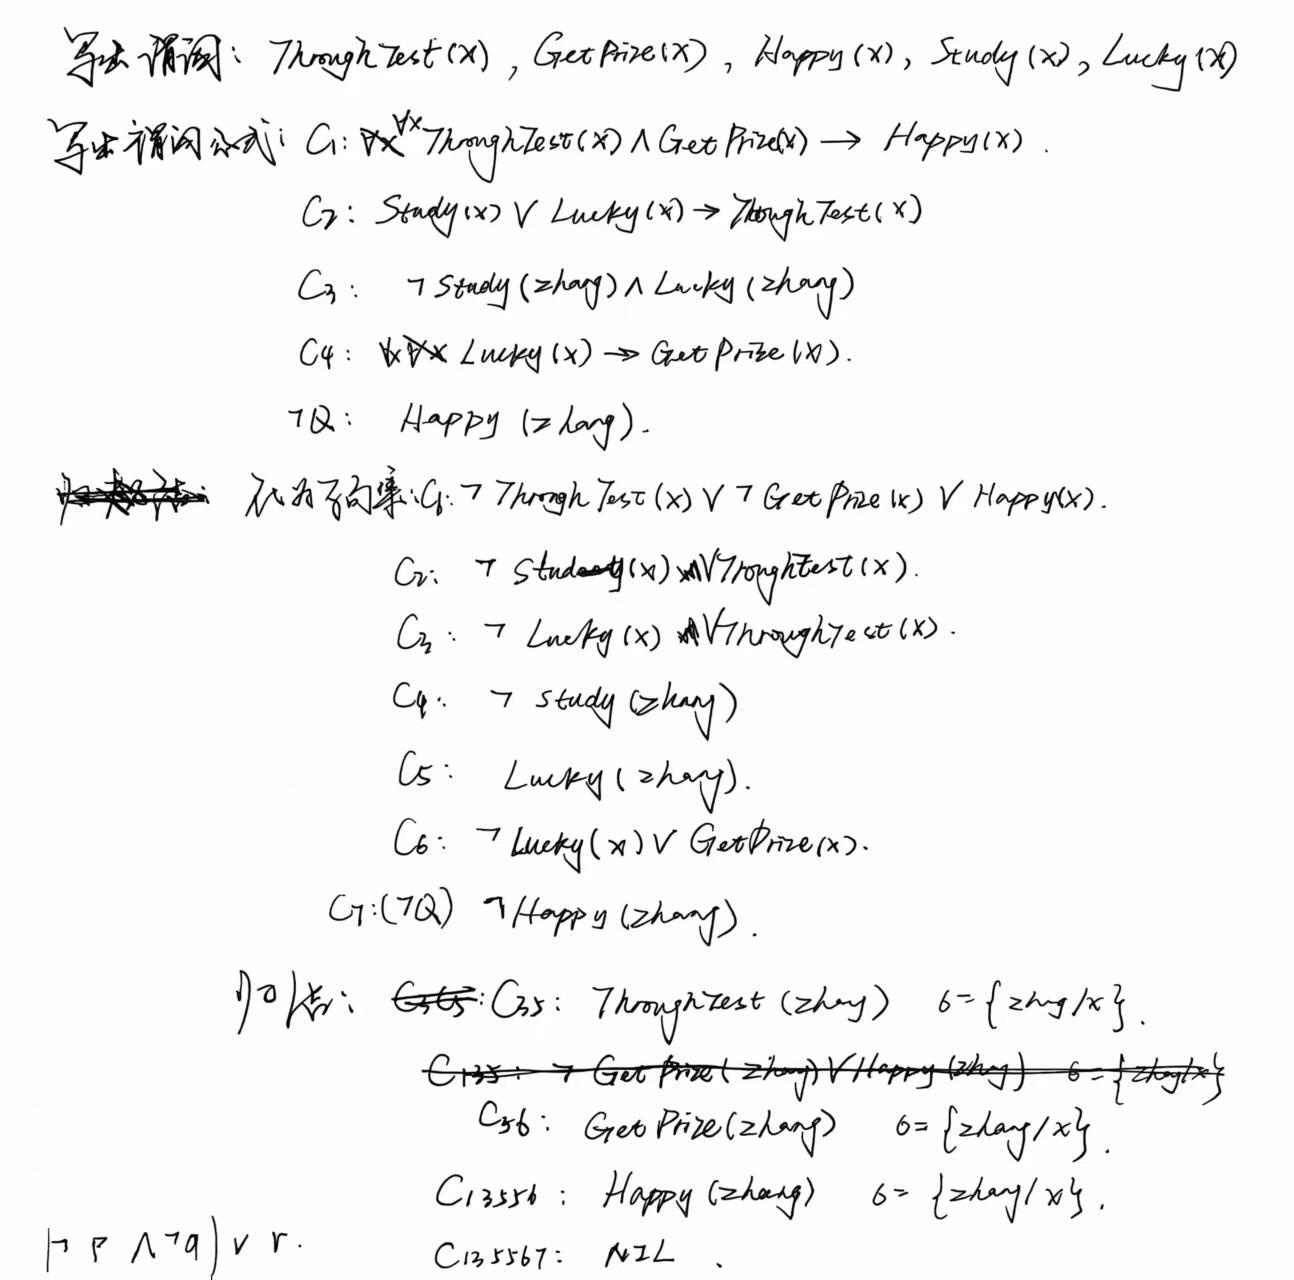 写出谓词: ThroughTest(x), GetPrize(x), Happy(x), Study(x), Lucky(x)
写出谓词公式: C1: ∀x ThroughTest(x) ∧ GetPrize(x) → Happy(x).
C2: Study(x) ∨ Lucky(x) → ThroughTest(x)
C3: ¬Study(zhang) ∧ Lucky(zhang)
C4: ∀x Lucky(x) → GetPrize(x).
¬Q: Happy(zhang).
化为子句集: C1: ¬ThroughTest(x) ∨ ¬GetPrize(x) ∨ Happy(x).
C2: ¬Study(x) ∨ ThroughTest(x).
C3: ¬Lucky(x) ∨ ThroughTest(x).
C4: ¬Study(zhang)
C5: Lucky(zhang).
C6: ¬Lucky(x) ∨ GetPrize(x).
C7: (¬Q) ¬Happy(zhang).
归结: C35: ThroughTest(zhang) б={zhang/x}.
C135: ¬GetPrize(zhang) ∨ Happy(zhang) б={zhang/x}
C56: GetPrize(zhang) б={zhang/x}.
C13556: Happy(zhang) б={zhang/x}.
(¬P ∧ ¬q) ∨ r.
C135567: NIL.